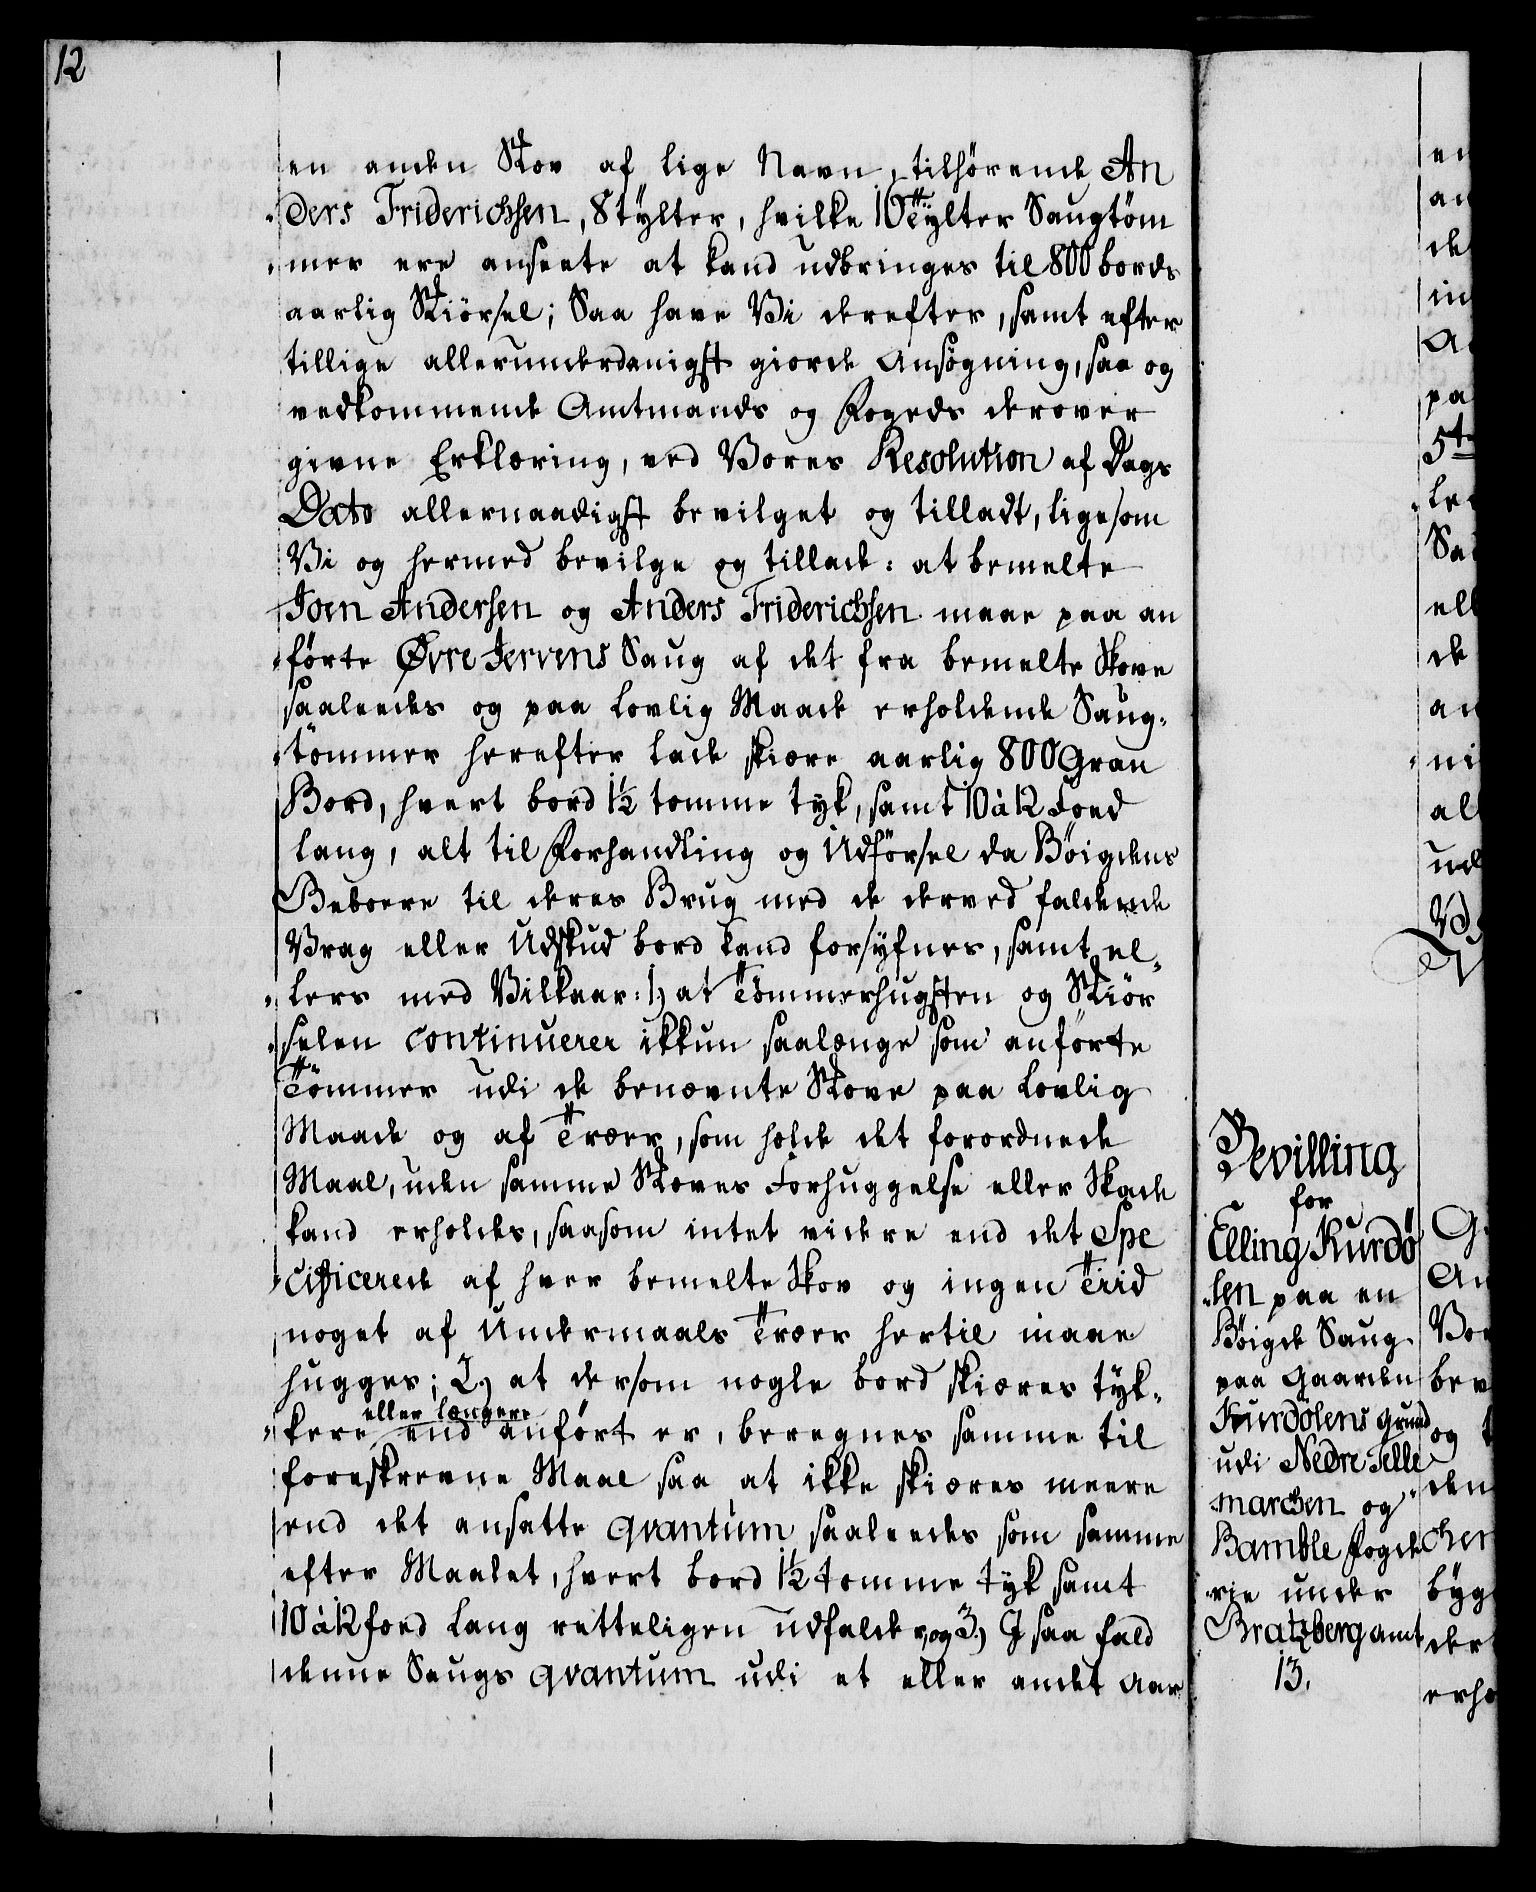 12
en anden Skov af lige Navn, tilhørende An
ders Friderichsen, 8 tylter, hvilke 10 Tylter Saugtöm
mer ere anseete at kand udbringes til 800 bords
aarlig Skiörsel; Saa have Vi derefter, samt efter
tillige allerunderdanigst giorde Ansögning, saa og
vedkommende Amtmands og Fogeds derover
givne Erklæring, ved Vores Resolution af Dags
Dato allernaadigst bevilget og tilladt, ligesom
Vi og hermed bevilge og tillade: at bemelte
Joen Andersen og Anders Friderichsen maae paa an
førte Øvre Jervens Saug af det fra bemelte Skove
saaleedes og paa lovlig Maade erholdende Saug-
tömmer herefter lade skiære aarlig 800 Gran
Bord, hvert bord 1½ tomme tyk, samt 10 à 12 Foed
lang, alt til Forhandling og Udförsel da Böigdens
Beboere til deres Brug med de derved faldende
Vrag eller Udskud bord kand forsÿfnes, samt el-
lers med Vilkaar: 1.) at Tömmerhugsten og Skiör
selen continuerer ikkun saalænge som anførte
Tömmer udi de benævnte Skove paa lovlig
Maade og af Træer, som holde det forordnede
Maal, uden samme Skoves Forhuggelse eller Skade
kand erholdes, saasom intet videre end det Spe
cificerede af hver bemelte Skov og ingen Tiid
noget af Undermaals Træer hertil maae
hugges; 2.) at dersom nogle bord skiæres tyk-
eller længere
kere end anfört er, beregnes samme til
foreskrevne Maal saa at ikke skiæres meere
end det ansatte qvantum saaleedes som samme
efter Maalet, hvert bord 1½ tomme tyk samt
10 à 12 foed lang retteligen udfalder, og 3.) I saa fald
denne Saugs qvantum udi et eller andet Aar
Bevilling
for
Elling Kurdö
len paa en
Böigde Saug
paa Gaarden
Kurdölens Grund
udi Nedre Telle
marchen og
Bamble Fogde
rie under
Bratzberg amt
13.